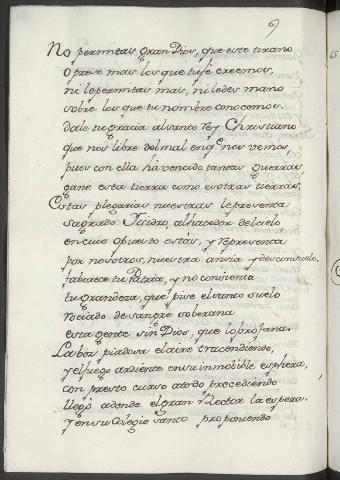 6)
No permitas gran Dios, que este tirano
opreve mas los que tu fé creemos,
ni le permitas mas, ni le des mano
sobre los que tu nombre conocemos.
Dale tu gracia al santo rey Christiano
que nos libre del mal en q.e nos vemos,
pues con ella há vencido tantas guerras,
gane esta tierra como esotras tierras.
Estas plegarias nuestras le presenta
sagrado Isidro, al hacedor del cielo,
en cuio opuesto estas, y representa
por nosotros, nuestra ansia y desconsuelo.
faborece tu Patria, y nó consienta
tu grandeza, que pise el santo suelo
rociado de sangre soberana
esta gente sin Dios, que lo profana.
La bóz piadosa el aire trascendiendo,
y el fuego ardiente en su inmobible esphera,
con presto curso al orbe precediendo
llegó adonde el gran Rector la espera.
y en su Colegio santo proponiendo